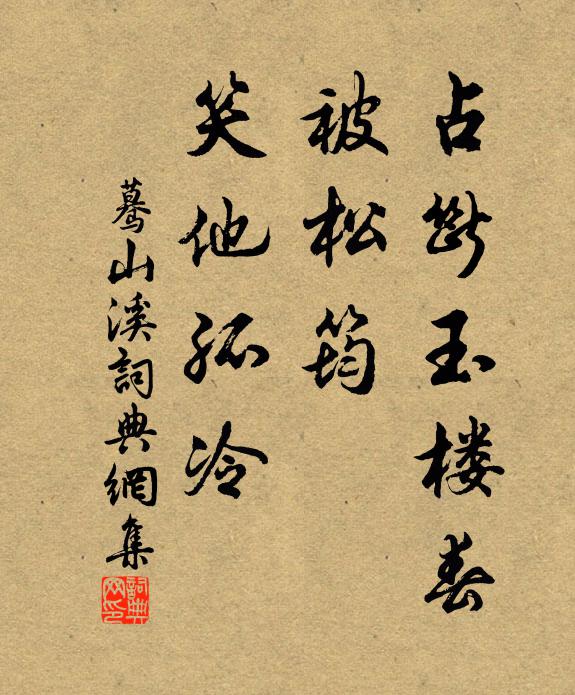 占断玉楼春
被松筠
笑他孤冷
蓦山溪詞典網集
詞典网印